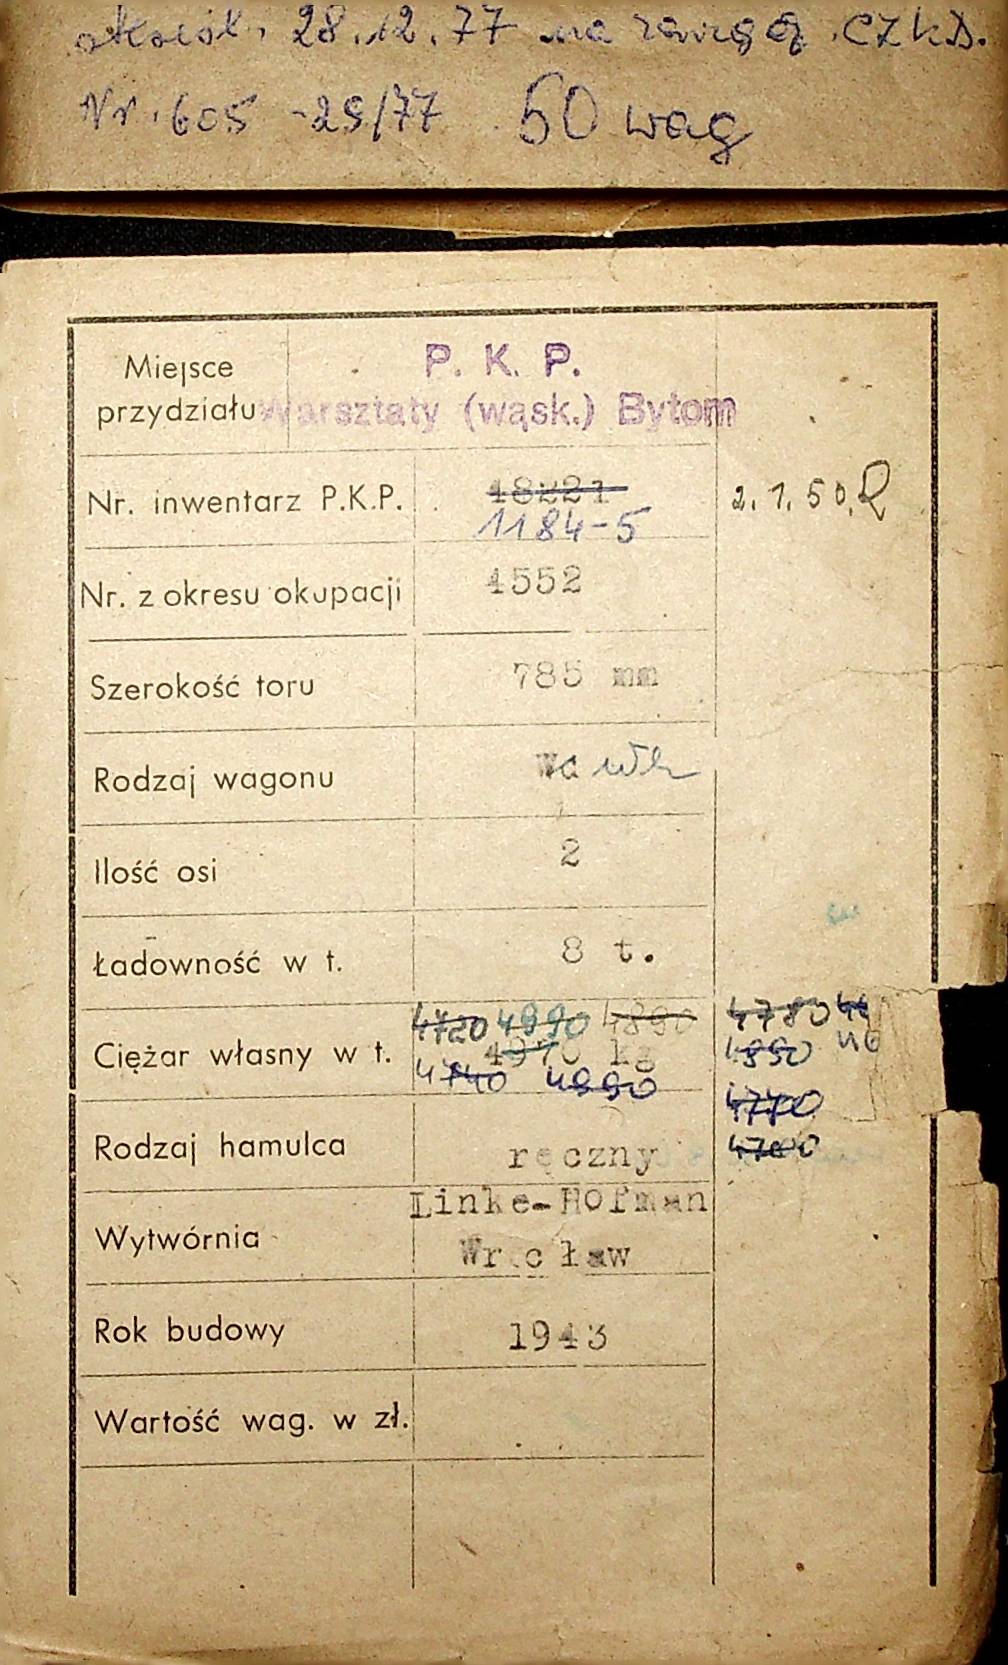 28.12.77 na
Nr. 605-29/77 50 wag
Miejsce przydziału P. K. P.
Warsztaty (wąsk.) Bytom
Nr. inwentarz P.K.P. 18221 2.1.50.
1184-5
Nr. z okresu okupacji 4552
Szerokość toru 785 mm
Rodzaj wagonu Wd
Ilość osi 2
Ładowność w t. 8 t.
4720 4990 4890 4780
Ciężar własny w t. 4970 kg 4850
4740 4990 4770
Rodzaj hamulca ręczny
Wytwórnia Linke-Hofman
Wrocław
Rok budowy 1943
Wartość wag. w zł.